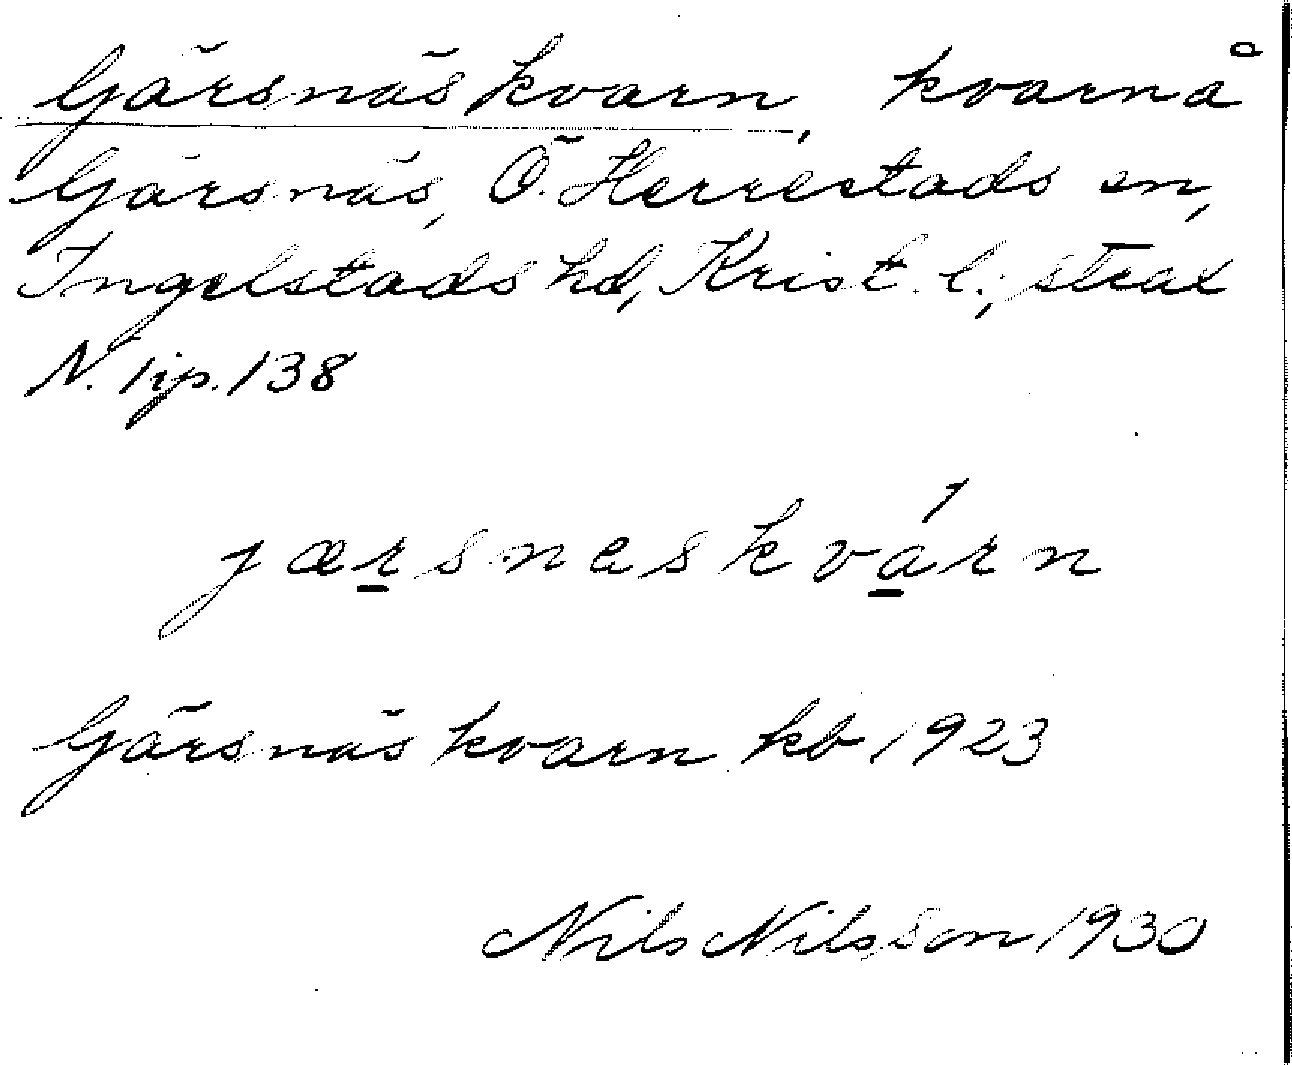 Gärsnäs kvarn, kvarn å
Gärsnäs, Ö. Herrestads sn,
Ingelstads hd, Krist. l.; strax
N. 1 ip. 138
jærsneskvárn
Gärsnäs kvarn kb 1923
Nils Nilsson 1930